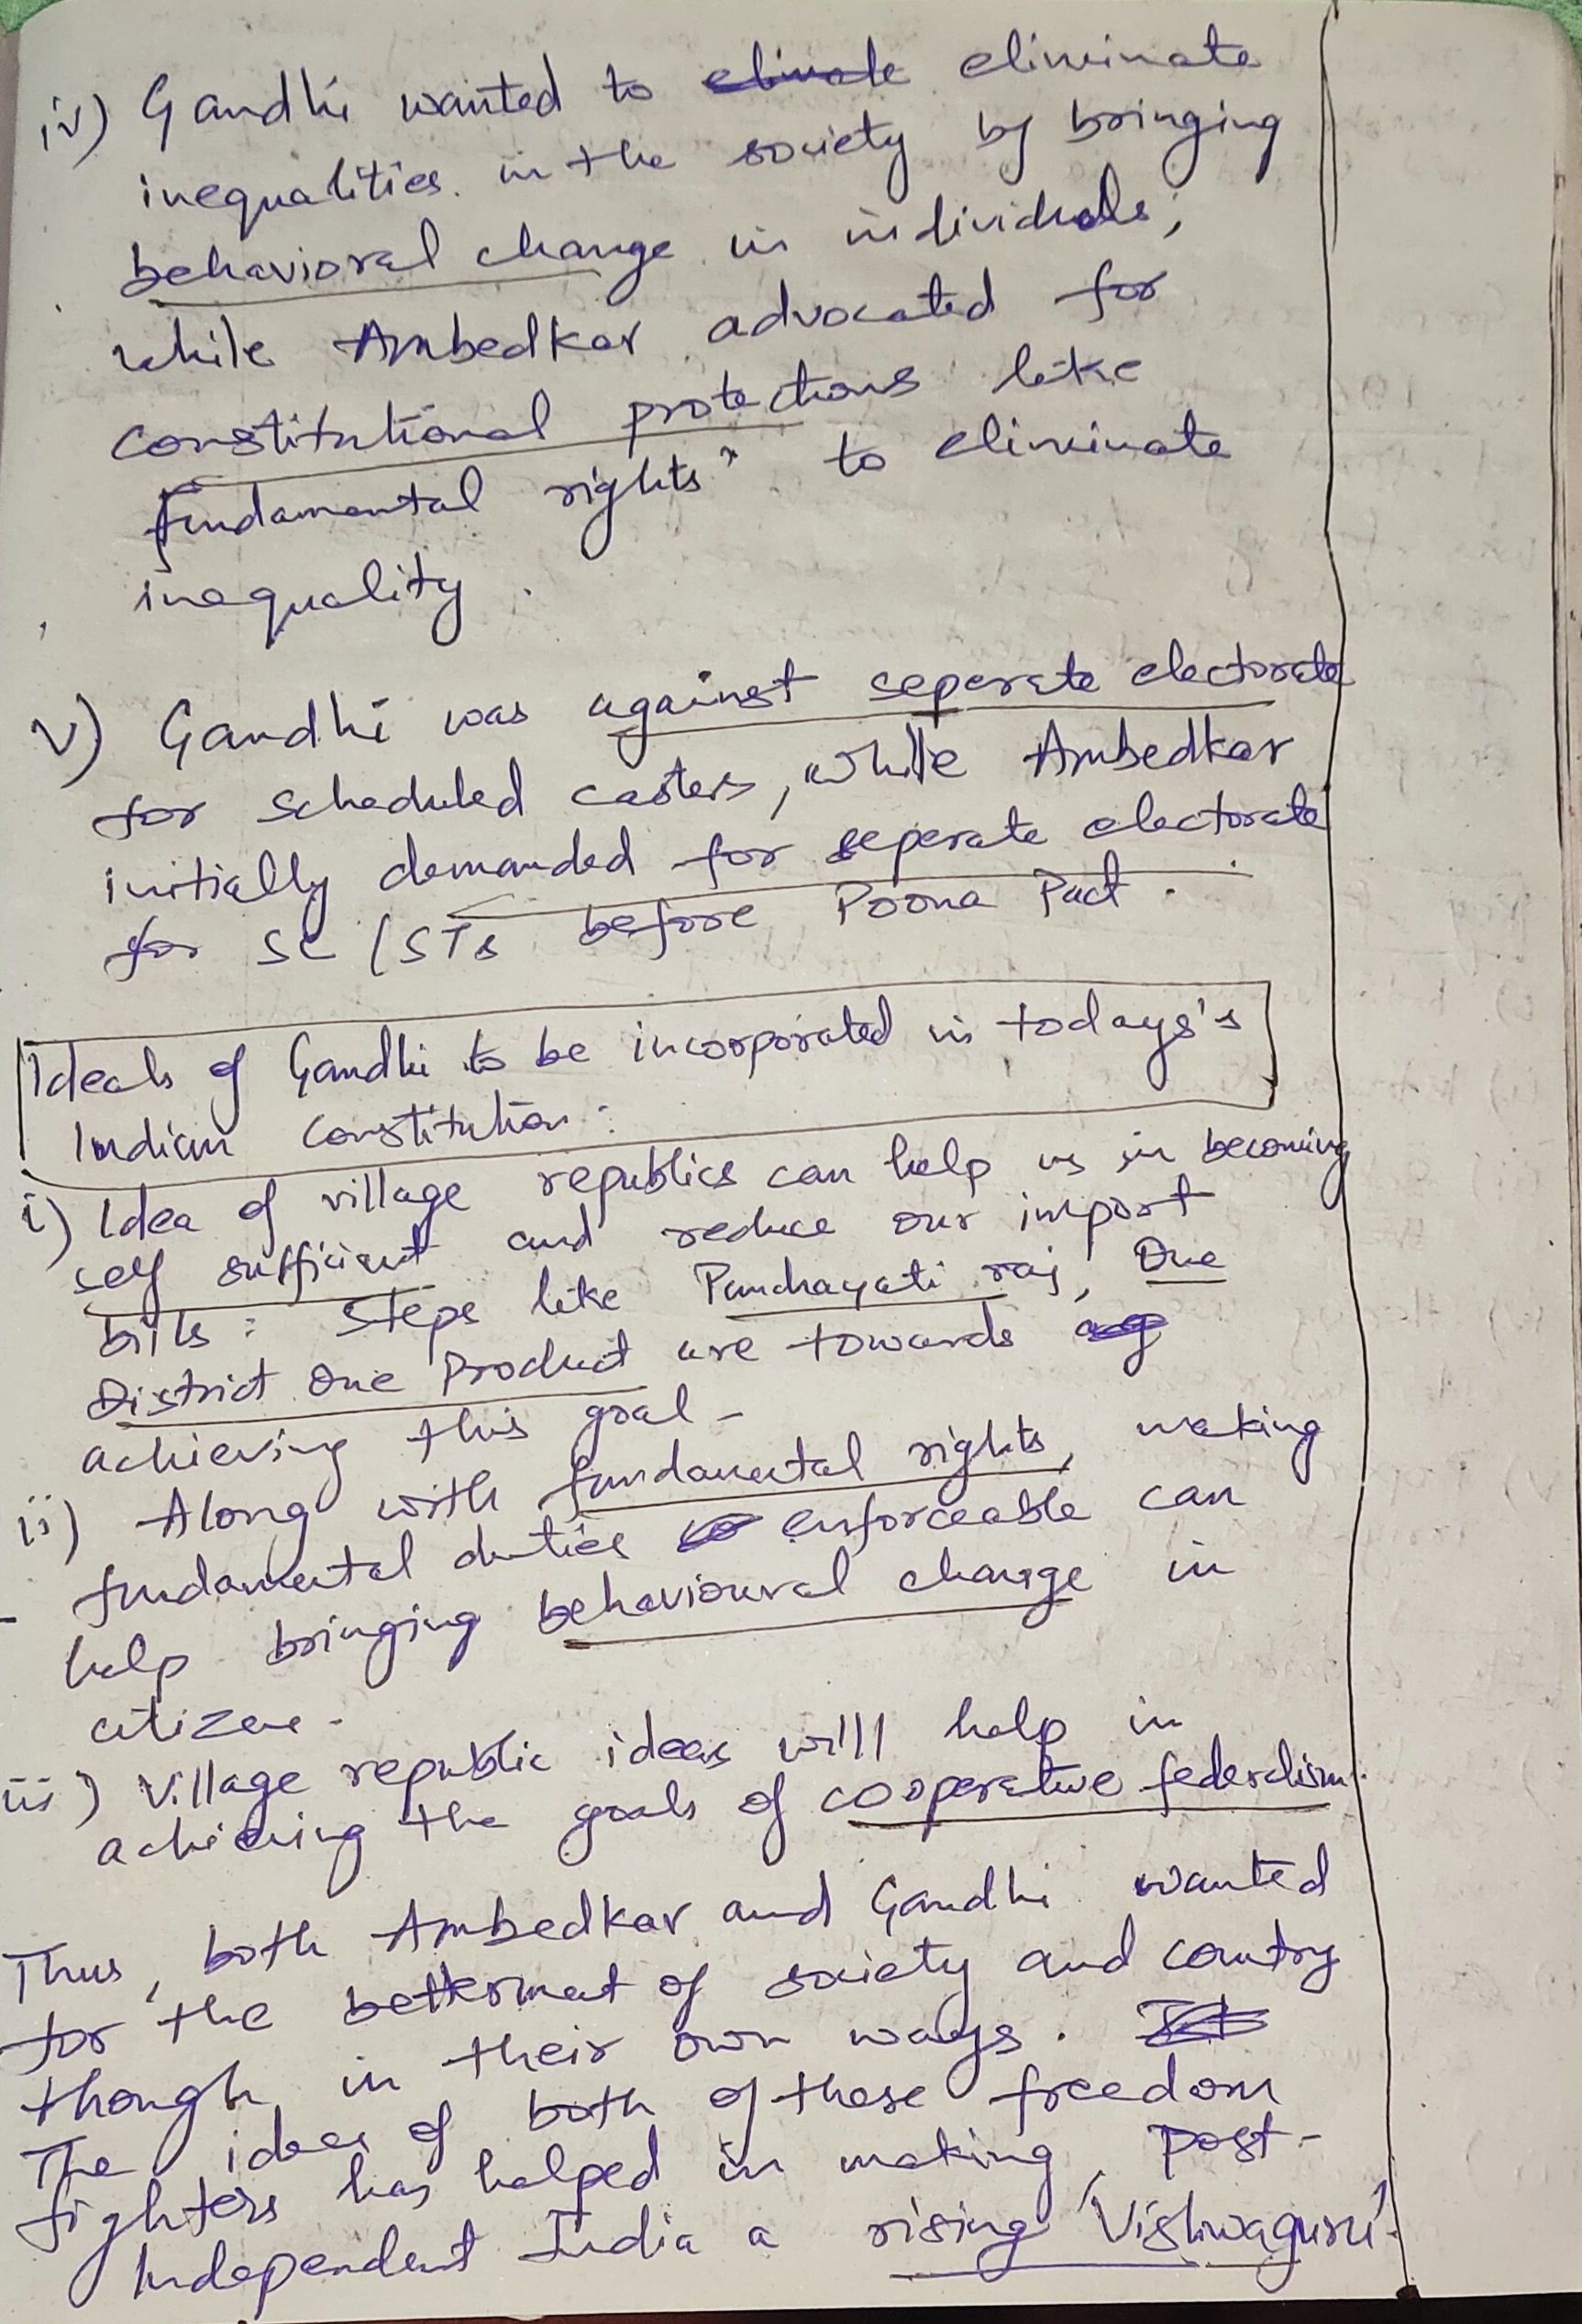 iv) Gandhi wanted to eliminate
inequalities in the society by bringing
behavioral change in individuals,
while Ambedkar advocated for
constitutional protections like
fundamental rights" to eliminate
inequality.
v) Gandhi was against seperate electorate
for scheduled castes, while Ambedkar
initially demanded for seperate electorate
for SC/STs before Poona Pact.
Ideals of Gandhi to be incorporated in todays's
Indian Constitution:
i) Idea of village republics can help us in becoming
self sufficient and reduce our import
bills: Steps like Panchayati raj, One
District One Product are towards
achieving this goal -
ii) Along with fundamental rights, making
fundamental duties enforceable can
help bringing behavioural change in
citizens.
iii) Village republic ideas will help in
achieving the goals of cooperative federalism.
Thus, both Ambedkar and Gandhi wanted
for the betterment of society and country
though in their own ways.
The ideas of both of these freedom
fighters has helped in making post-
Independent India a rising 'Vishwaguru'.